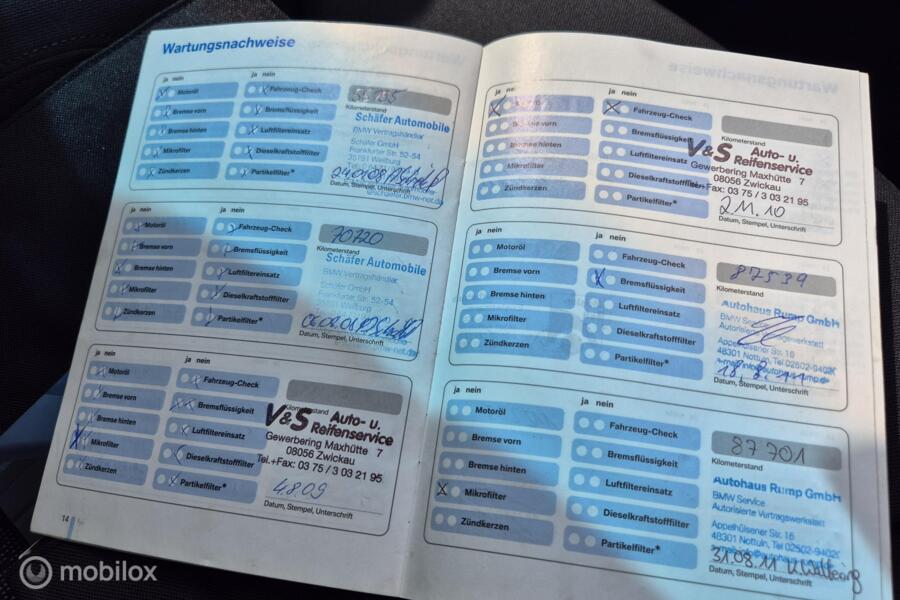 Wartungsnachweise
ja nein
ja nein
Motoröl
Fahrzeug-Check
Bremse vorn
Bremsflüssigkeit
Bremse hinten
Luftfiltereinsatz
Mikrofilter
Dieselkraftstofffilter
Zündkerzen
Partikelfilter*
Kilometerstand
Schäfer Automobile
BMW Vertragshändler
Schäfer GmbH
Frankfurter Str. 52-54
35781 Weilburg
Datum, Stempel, Unterschrift
ja nein
ja nein
Motoröl
Fahrzeug-Check
Bremse vorn
Bremsflüssigkeit
Bremse hinten
Luftfiltereinsatz
Mikrofilter
Dieselkraftstofffilter
Zündkerzen
Partikelfilter*
70720
Kilometerstand
Schäfer Automobile
BMW Vertragshändler
Schäfer GmbH
Frankfurter Str. 52-54
Datum, Stempel, Unterschrift
ja nein
ja nein
Motoröl
Fahrzeug-Check
Bremse vorn
Bremsflüssigkeit
Bremse hinten
Luftfiltereinsatz
Mikrofilter
Dieselkraftstofffilter
Zündkerzen
Partikelfilter*
Kilometerstand
V&S Auto- u.
Reifenservice
Gewerbering Maxhütte 7
08056 Zwickau
Tel.+Fax: 03 75 / 3 03 21 95
4.8.09
Datum, Stempel, Unterschrift
14
ja
ja nein
Fahrzeug-Check
Bremse vorn
Bremsflüssigkeit
Bremse hinten
Luftfiltereinsatz
Mikrofilter
Dieselkraftstofffilter
Zündkerzen
Partikelfilter*
Kilometerstand
V&S Auto- u.
Reifenservice
Gewerbering Maxhütte 7
08056 Zwickau
Fax: 03 75 / 3 03 21 95
2.11.10
Datum, Stempel, Unterschrift
ja nein
ja nein
Motoröl
Fahrzeug-Check
Bremse vorn
Bremsflüssigkeit
Bremse hinten
Luftfiltereinsatz
Mikrofilter
Dieselkraftstofffilter
Zündkerzen
Partikelfilter*
87539
Kilometerstand
Autohaus Rump GmbH
BMW Service
Autorisierte Vertragswerkstatt
Appelhülsener Str. 16
48301 Nottuln, Tel 02502-9402
18.8.11
Datum, Stempel, Unterschrift
ja nein
ja nein
Motoröl
Fahrzeug-Check
Bremse vorn
Bremsflüssigkeit
Bremse hinten
Luftfiltereinsatz
Mikrofilter
Dieselkraftstofffilter
Zündkerzen
Partikelfilter*
87701
Kilometerstand
Autohaus Rump GmbH
BMW Service
Autorisierte Vertragswerkstatt
Appelhülsener Str. 16
48301 Nottuln, Tel 02502-9402
31.08.11
Datum, Stempel, Unterschrift
mobilox